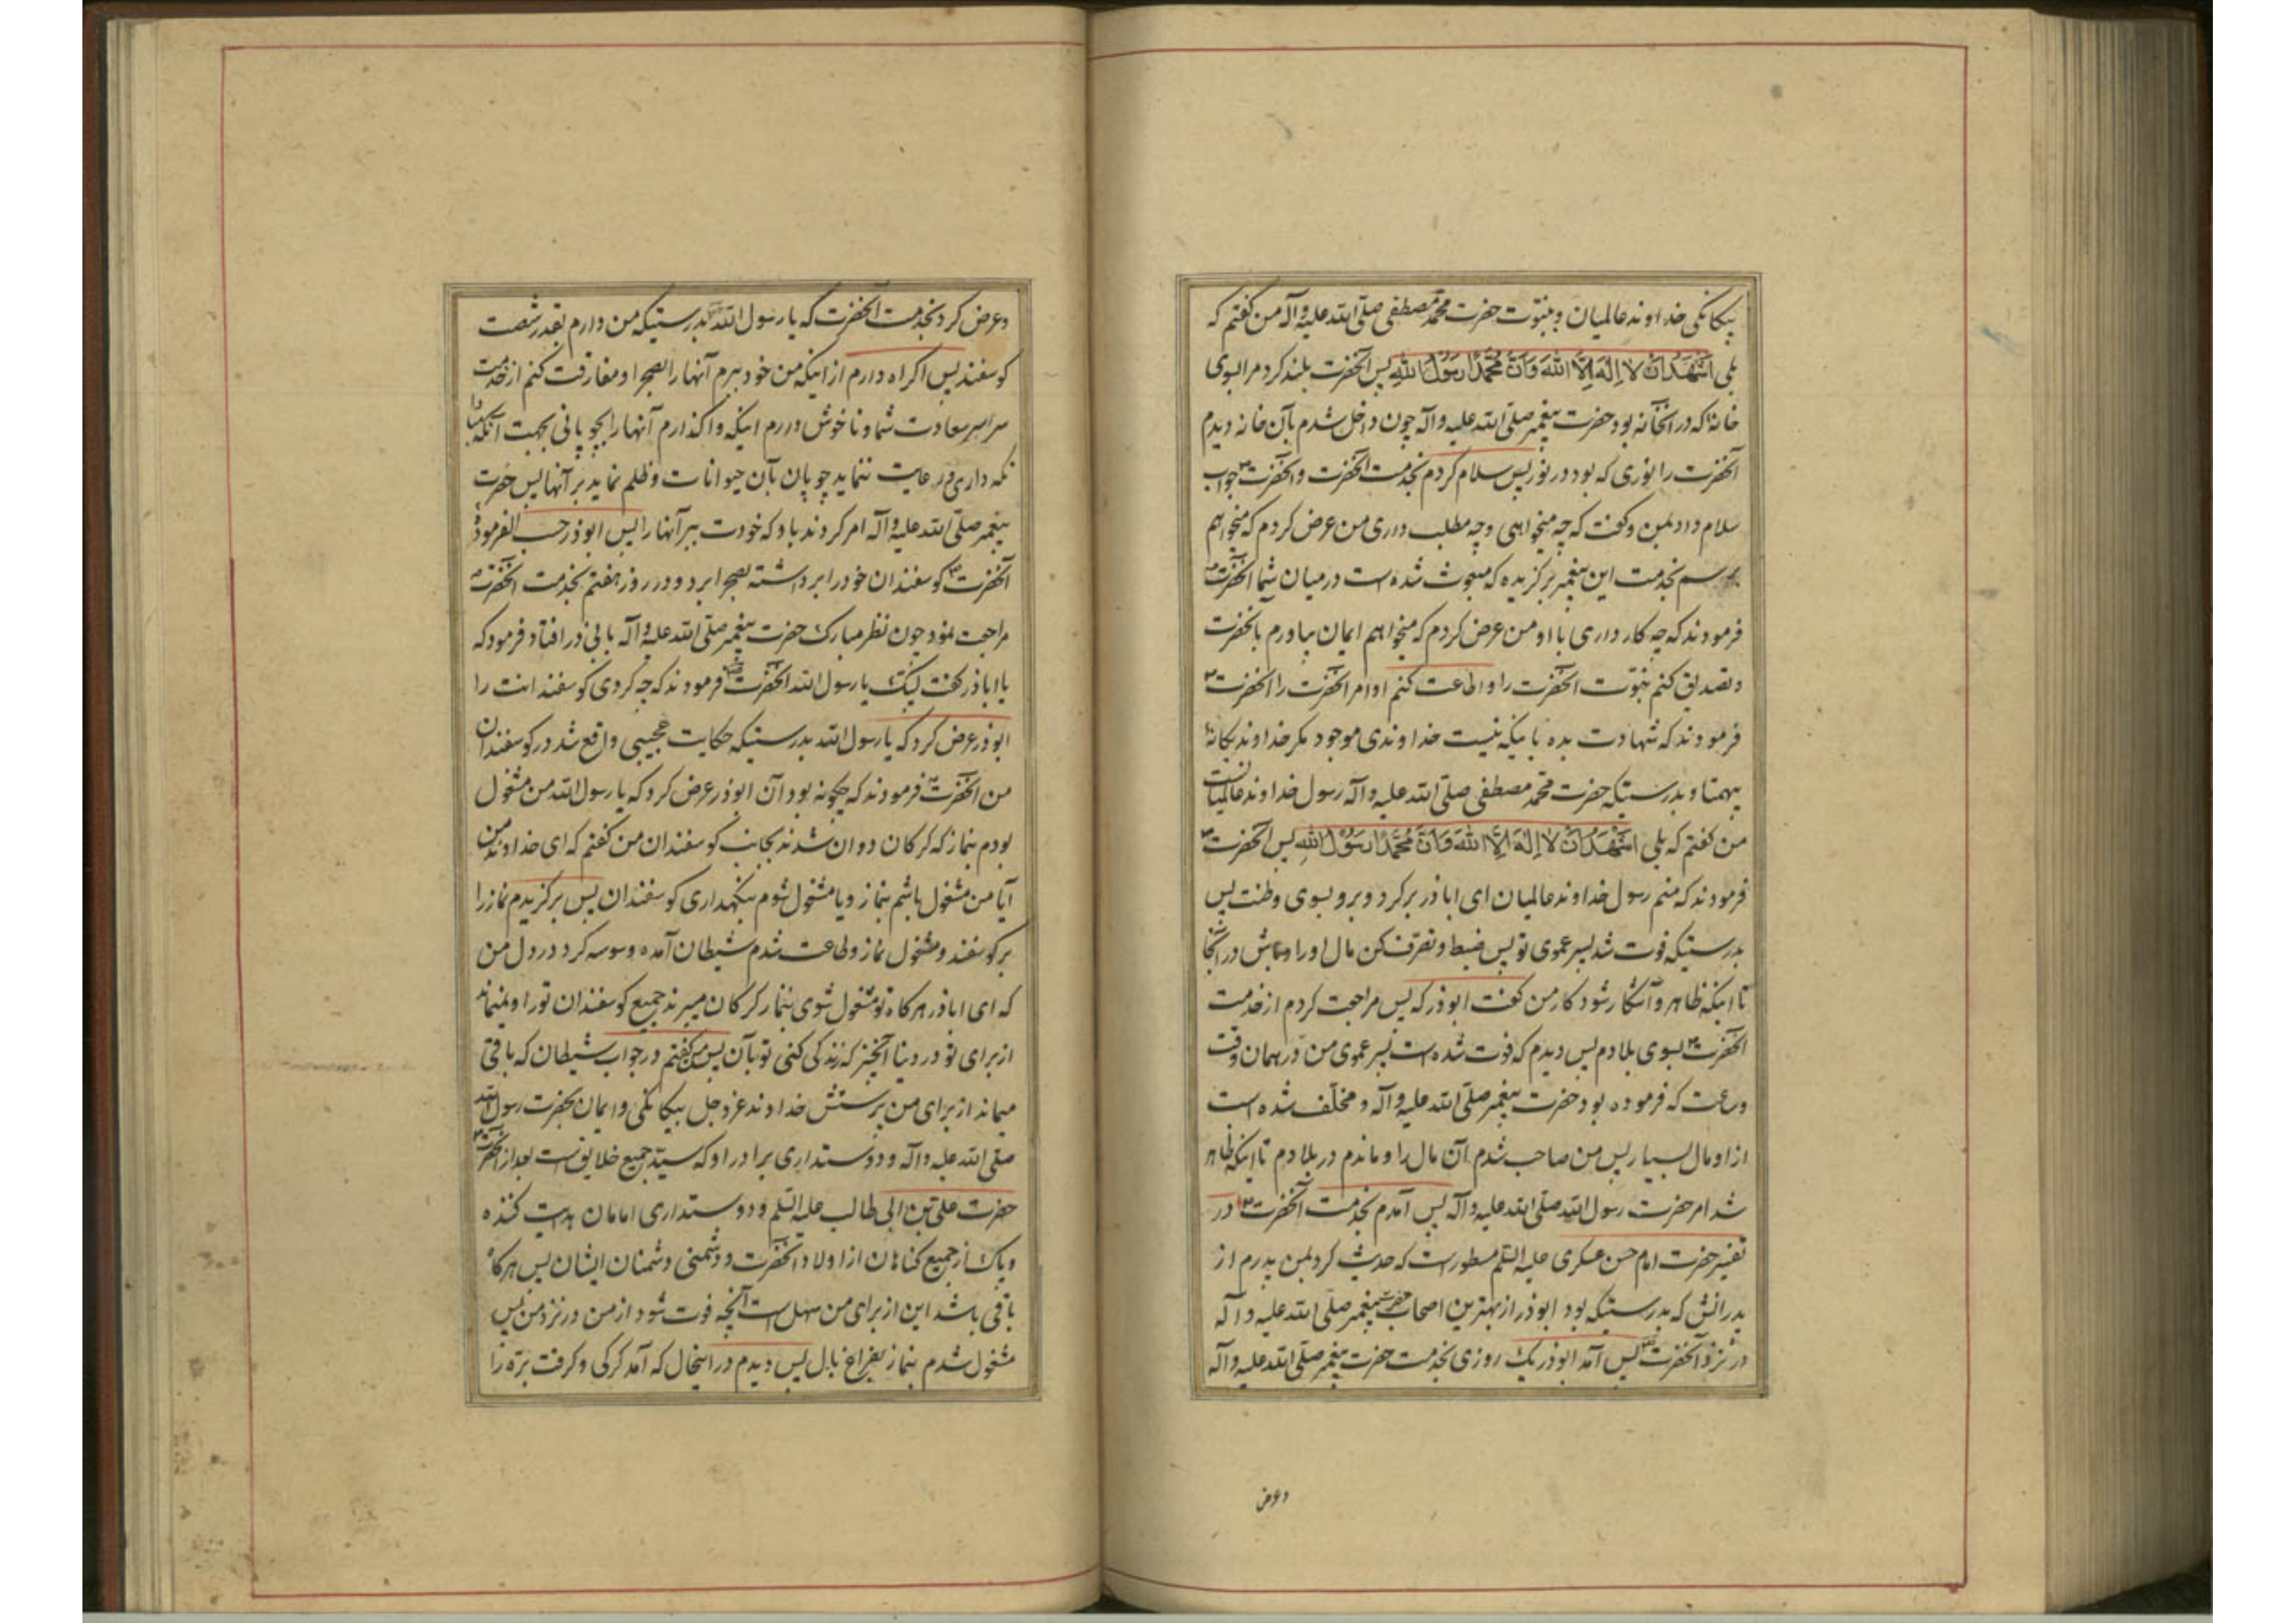 بیکانکی خداوند عالمیان و بنبوت حضرت محمد مصطفی صلی الله علیه و آله من کفتم که
بلی اَشْهَدُ اَنْ لا اِلٰهَ اِلَّا اللهَ وَ اَنَّ مُحَمَّدًا رَسُوْلُ اللهِ پس آنحضرت بلند کرد مرا بسوی
خانۀ که در آنخانه بود حضرت پیغمبر صلی الله علیه و آله چون داخل شدم بآن خانه دیدم
آنحضرت را نوری که بود در نور پس سلام کردم بخدمت آنحضرت و آنحضرت جواب
سلام داد بمن و کفت که چه میخواهی و چه مطلب داری من عرض کردم که میخواهم
برسم بخدمت این پیغمبر برکزیده که مبعوث شده است در میان شما آنحضرت
فرمودند که چه کار داری با او من عرض کردم که میخواهم ایمان بیاورم بآنحضرت
و تصدیق کنم بنبوت آنحضرت را و اطاعت کنم اوامر آنحضرت را آنحضرت
فرمودند که شهادت بده باینکه نیست خداوندی موجود مکر خداوند یکانۀ
بیهمتا و بدرستیکه حضرت محمد مصطفی صلی الله علیه و آله رسول خداوند عالمیانست
من کفتم که بلی اَشْهَدُ اَنْ لا اِلٰهَ اِلَّا اللهَ وَ اَنَّ مُحَمَّدًا رَسُوْلُ اللهِ پس آنحضرت
فرمودند که منم رسول خداوند عالمیان ای اباذر برکرد و برو بسوی وطنت پس
بدرستیکه فوت شد پسر عموی تو پس ضبط و تصرف کن مال او را و باش در آنجا
تا اینکه ظاهر و آشکار شود کار من کفت ابوذر که پس مراجعت کردم از خدمت
آنحضرت بسوی بلادم پس دیدم که فوت شده است پسر عموی من در همان وقت
و ساعت که فرموده بود حضرت پیغمبر صلی الله علیه و آله و مخلف شده است
از او مال بسیار پس من صاحب شدم آن مال را و ماندم در بلادم تا اینکه ظاهر
شد امر حضرت رسول الله صلی الله علیه و آله پس آمدم بخدمت آنحضرت در
تفسیر حضرت امام حسن عسکری علیه السلم مسطور است که حدیث کرد بمن پدرم از
پدرانش که بدرستیکه بود ابوذر از بهترین اصحاب حضرت پیغمبر صلی الله علیه و آله
در نزد آنحضرت پس آمد ابوذر یک روزی بخدمت حضرت پیغمبر صلی الله علیه و آله
و عرض
و عرض کرد بخدمت آنحضرت که یا رسول الله بدرستیکه من دارم بقدر شصت
کوسفند پس اکراه دارم از اینکه من خود ببرم آنها را بصحرا و مفارقت کنم از خدمت
سراسر سعادت شما و ناخوش دارم اینکه واکذارم آنها را بچوپانی بجهت آنکه مبادا
نکه داری و رعایت ننماید چوپان بآن حیوانات و ظلم نماید بر آنها پس حضرت
پیغمبر صلی الله علیه و آله امر کردند باو که خودت ببر آنها را پس ابوذر حسب الفرمودۀ
آنحضرت کوسفندان خود را برداشته بصحرا برد و در روز هفتم بخدمت آنحضرت
مراجعت نمود چون نظر مبارک حضرت پیغمبر صلی الله علیه و آله بابی ذر افتاد فرمود که
یا اباذر کفت لبیک یا رسول الله آنحضرت فرمودند که چه کردی کوسفندانت را
ابوذر عرض کرد که یا رسول الله بدرستیکه حکایت عجیبی واقع شد در کوسفندان
من آنحضرت فرمودند که چکونه بود آن ابوذر عرض کرد که یا رسول الله من مشغول
بودم بنماز که کرکان دوان شدند بجانب کوسفندان من کفتم که ای خداوند من
آیا من مشغول باشم بنماز و یا مشغول شوم بنکهداری کوسفندان پس برکزیدم نماز را
بر کوسفند و مشغول نماز و طاعت شدم شیطان آمده وسوسه کرد در دل من
که ای اباذر هرکاه تو مشغول شوی بنماز کرکان میبرند جمیع کوسفندان تو را و نمیماند
از برای تو در دنیا آنچیز که زندکی کنی تو بآن پس من کفتم در جواب شیطان که باقی
میماند از برای من پرستش خداوند عز و جل بیکانکی و ایمان بحضرت رسول الله
صلی الله علیه و آله و دوستداری برادر او که سید جمیع خلایق است بعد از آنحضرت
حضرت علی بن ابی طالب علیه السلم و دوستداری امامان هدایت کننده
و پاک از جمیع کناهان از اولاد آنحضرت و دشمنی دشمنان ایشان پس هرکاه
باقی باشد این از برای من سهل است آنچه فوت شود از من در نزد من پس
مشغول شدم بنماز بفراغ بال پس دیدم در اینحال که آمد کرکی و کرفت برّه را